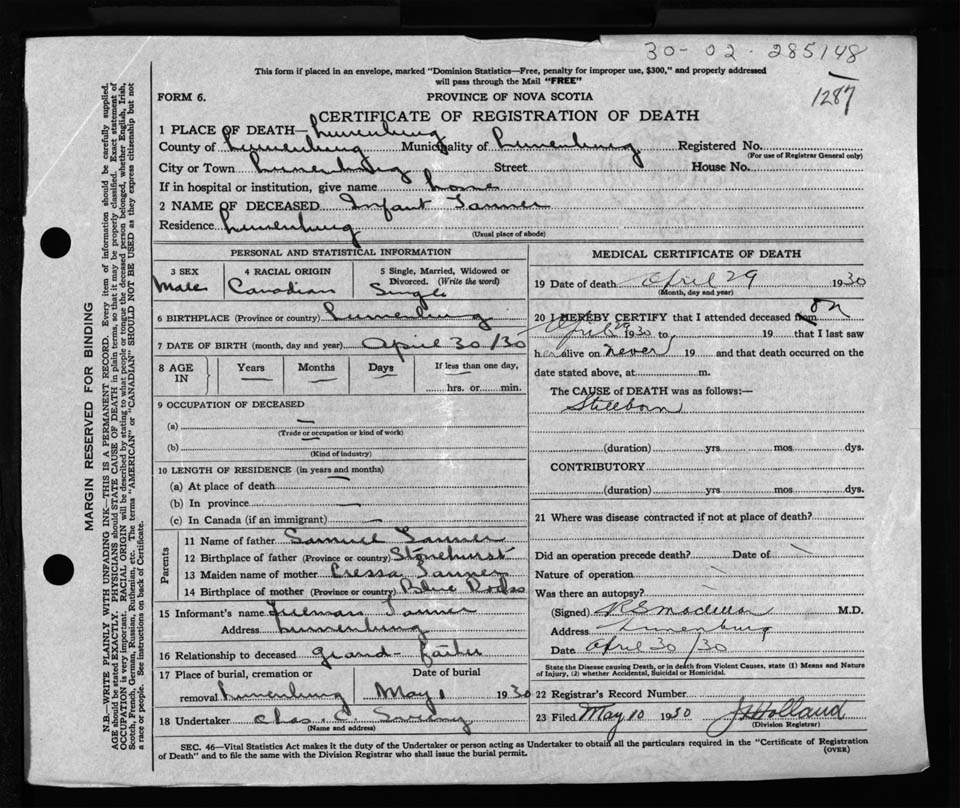 30-02-285148
1287
This form if placed in an envelope, marked "Dominion Statistics—Free, penalty for improper use, $300," and properly addressed
will pass through the Mail "FREE"
FORM 6. PROVINCE OF NOVA SCOTIA
CERTIFICATE OF REGISTRATION OF DEATH
1 PLACE OF DEATH— Lunenburg
County of Lunenburg Municipality of Lunenburg Registered No.
(For use of Registrar General only)
City or Town Lunenburg Street House No.
If in hospital or institution, give name home
2 NAME OF DECEASED Infant Tanner
Residence Lunenburg
(Usual place of abode)
PERSONAL AND STATISTICAL INFORMATION
3 SEX 4 RACIAL ORIGIN 5 Single, Married, Widowed or
Divorced. (Write the word)
Male Canadian Single
6 BIRTHPLACE (Province or country) Lunenburg
7 DATE OF BIRTH (month, day and year) April 30/30
8 AGE IN Years Months Days If less than one day,
hrs. or min.
9 OCCUPATION OF DECEASED
(a) —
(Trade or occupation or kind of work)
(b)
(Kind of industry)
10 LENGTH OF RESIDENCE (in years and months)
(a) At place of death —
(b) In province —
(c) In Canada (if an immigrant) —
Parents
11 Name of father Samuel Tanner
12 Birthplace of father (Province or country) Stonehurst
13 Maiden name of mother Tanner
14 Birthplace of mother (Province or country) Blue Rocks
15 Informant's name Tanner
Address Lunenburg
16 Relationship to deceased grand-father
17 Place of burial, cremation or Date of burial
removal Lunenburg May 1 1930
18 Undertaker Chas. C.
(Name and address)
MEDICAL CERTIFICATE OF DEATH
19 Date of death April 29 1930
(Month, day and year)
20 I HEREBY CERTIFY that I attended deceased from on
April 29 1930 to 19 that I last saw
h er alive on never 19 and that death occurred on the
date stated above, at m.
The CAUSE of DEATH was as follows:—
Stillborn
(duration) yrs mos. dys.
CONTRIBUTORY
(duration) yrs mos. dys.
21 Where was disease contracted if not at place of death?
Did an operation precede death? Date of
Nature of operation
Was there an autopsy?
(Signed) M.D.
Address Lunenburg
Date April 30/30
State the Disease causing Death, or in death from Violent Causes, state (1) Means and Nature
of Injury, (2) whether Accidental, Suicidal or Homicidal.
22 Registrar's Record Number
23 Filed May 10 1930 Holland
(Division Registrar)
SEC. 46—Vital Statistics Act makes it the duty of the Undertaker or person acting as Undertaker to obtain all the particulars required in the "Certificate of Registration
of Death" and to file the same with the Division Registrar who shall issue the burial permit.
(OVER)
MARGIN RESERVED FOR BINDING
N.B.—WRITE PLAINLY WITH UNFADING INK—THIS IS A PERMANENT RECORD. Every item of information should be carefully supplied.
AGE should be stated EXACTLY. PHYSICIANS should STATE CAUSE OF DEATH in plain terms, so that it may be properly classified. Exact statement of
OCCUPATION is very important. RACIAL ORIGIN will be described by stating to what people or tongue the deceased person belonged, whether English, Irish,
Scotch, French, German, Russian, Ruthenian, etc. The terms "AMERICAN" or "CANADIAN" SHOULD NOT BE USED as they express citizenship but not
a race or people. See instructions on back of Certificate.